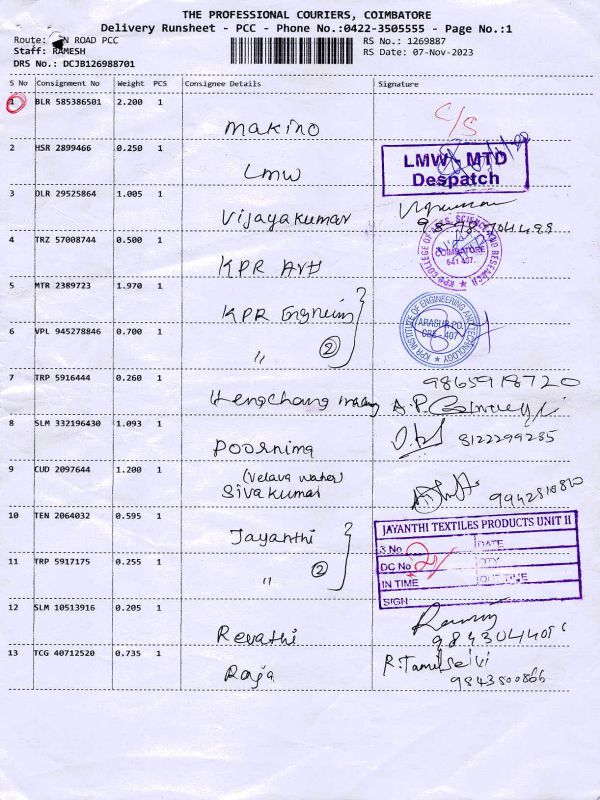 THE PROFESSIONAL COURIERS, COIMBATORE
Delivery Runsheet - PCC - Phone No.:0422-3505555 - Page No.:1
Route: N ROAD PCC
Staff: RAMESH
DRS No.: DCJB126988701
RS No.: 1269887
RS Date: 07-Nov-2023
S No Consignment No Weight PCS Consignee Details Signature
1 BLR 585386501 2.200 1
Makino C/S
2 HSR 2899466 0.250 1
LMW
LMW - MTD
Despatch
3 DLR 29525864 1.005 1
Vijayakumar
4 TRZ 57008744 0.500 1
KPR Art
KPR COLLEGE OF ARTS, SCIENCE AND RESEARCH
COIMBATORE
641 407.
5 MTR 2389723 1.970 1
KPR Engneim
KPR INSTITUTE OF ENGINEERING AND TECHNOLOGY
ARASUR PO.
CBE - 407
6 VPL 945278846 0.700 1
" 2
7 TRP 5916444 0.260 1
9865918720
Hengchang
8 SLM 332196430 1.093 1
Poornima 8122299285
9 CUD 2097644 1.200 1
(Velava water)
Sivakumar
10 TEN 2064032 0.595 1
Jayanthi
JAYANTHI TEXTILES PRODUCTS UNIT II
S.No DATE
DC No QTY
IN TIME OUT TIME
SIGN
11 TRP 5917175 0.255 1
" 2
12 SLM 10513916 0.205 1
Revathi
13 TCG 40712520 0.735 1
Raja R. Tamilselvi
9843800866